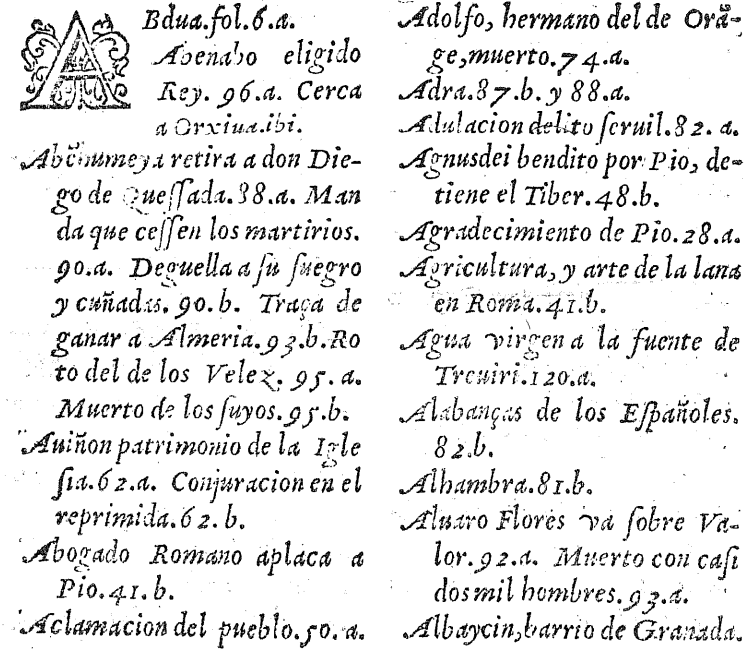 ABdua.fol.6.a.
Abenabo eligido
Rey. 96.a. Cerca
a Orxiua.ibi.
Abēhumeya retira a don Die-
go de Quessada.88.a. Man
da que cessen los martirios.
90.a. Deguella a su suegro
y cuñadas. 90.b. Traça de
ganar a Almeria.93.b.Ro
to del de los Velez. 95.a.
Muerto de los suyos.95.b.
Auiñon patrimonio de la Igle
sia.62.a. Conjuracion en el
reprimida.62.b.
Abogado Romano aplaca a
Pio.41.b.
Aclamacion del pueblo.50.a.
Adolfo, hermano del de Orā-
ge,muerto.74.a.
Adra.87.b. y 88.a.
Adulacion delito seruil.82. a.
Agnusdei bendito por Pio, de-
tiene el Tiber.48.b.
Agradecimiento de Pio.28.a.
Agricultura, y arte de la lana
en Roma.41.b.
Agua virgen a la fuente de
Treuiri.120.a.
Alabanças de los Españoles.
82.b.
Alhambra.81.b.
Aluaro Flores va sobre Va-
lor.92.a. Muerto con casi
dos mil hombres.93.a.
Albaycin,barrio de Granada.